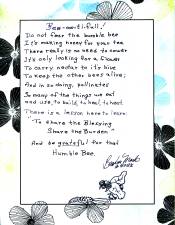 Bee-au-ti-full!
Do not fear the bumble bee
It's making honey for your tea
There really is no need to cower
It's only looking for a flower
To carry nectar to it's hive
To keep the other bees alive;
And in so doing, pollinates
So many of the things we eat
and use, to build, to heal, to treat.
There is a lesson here to learn:
"To share the Blessing
Share the Burden"
And be grateful for that
Humble Bee.